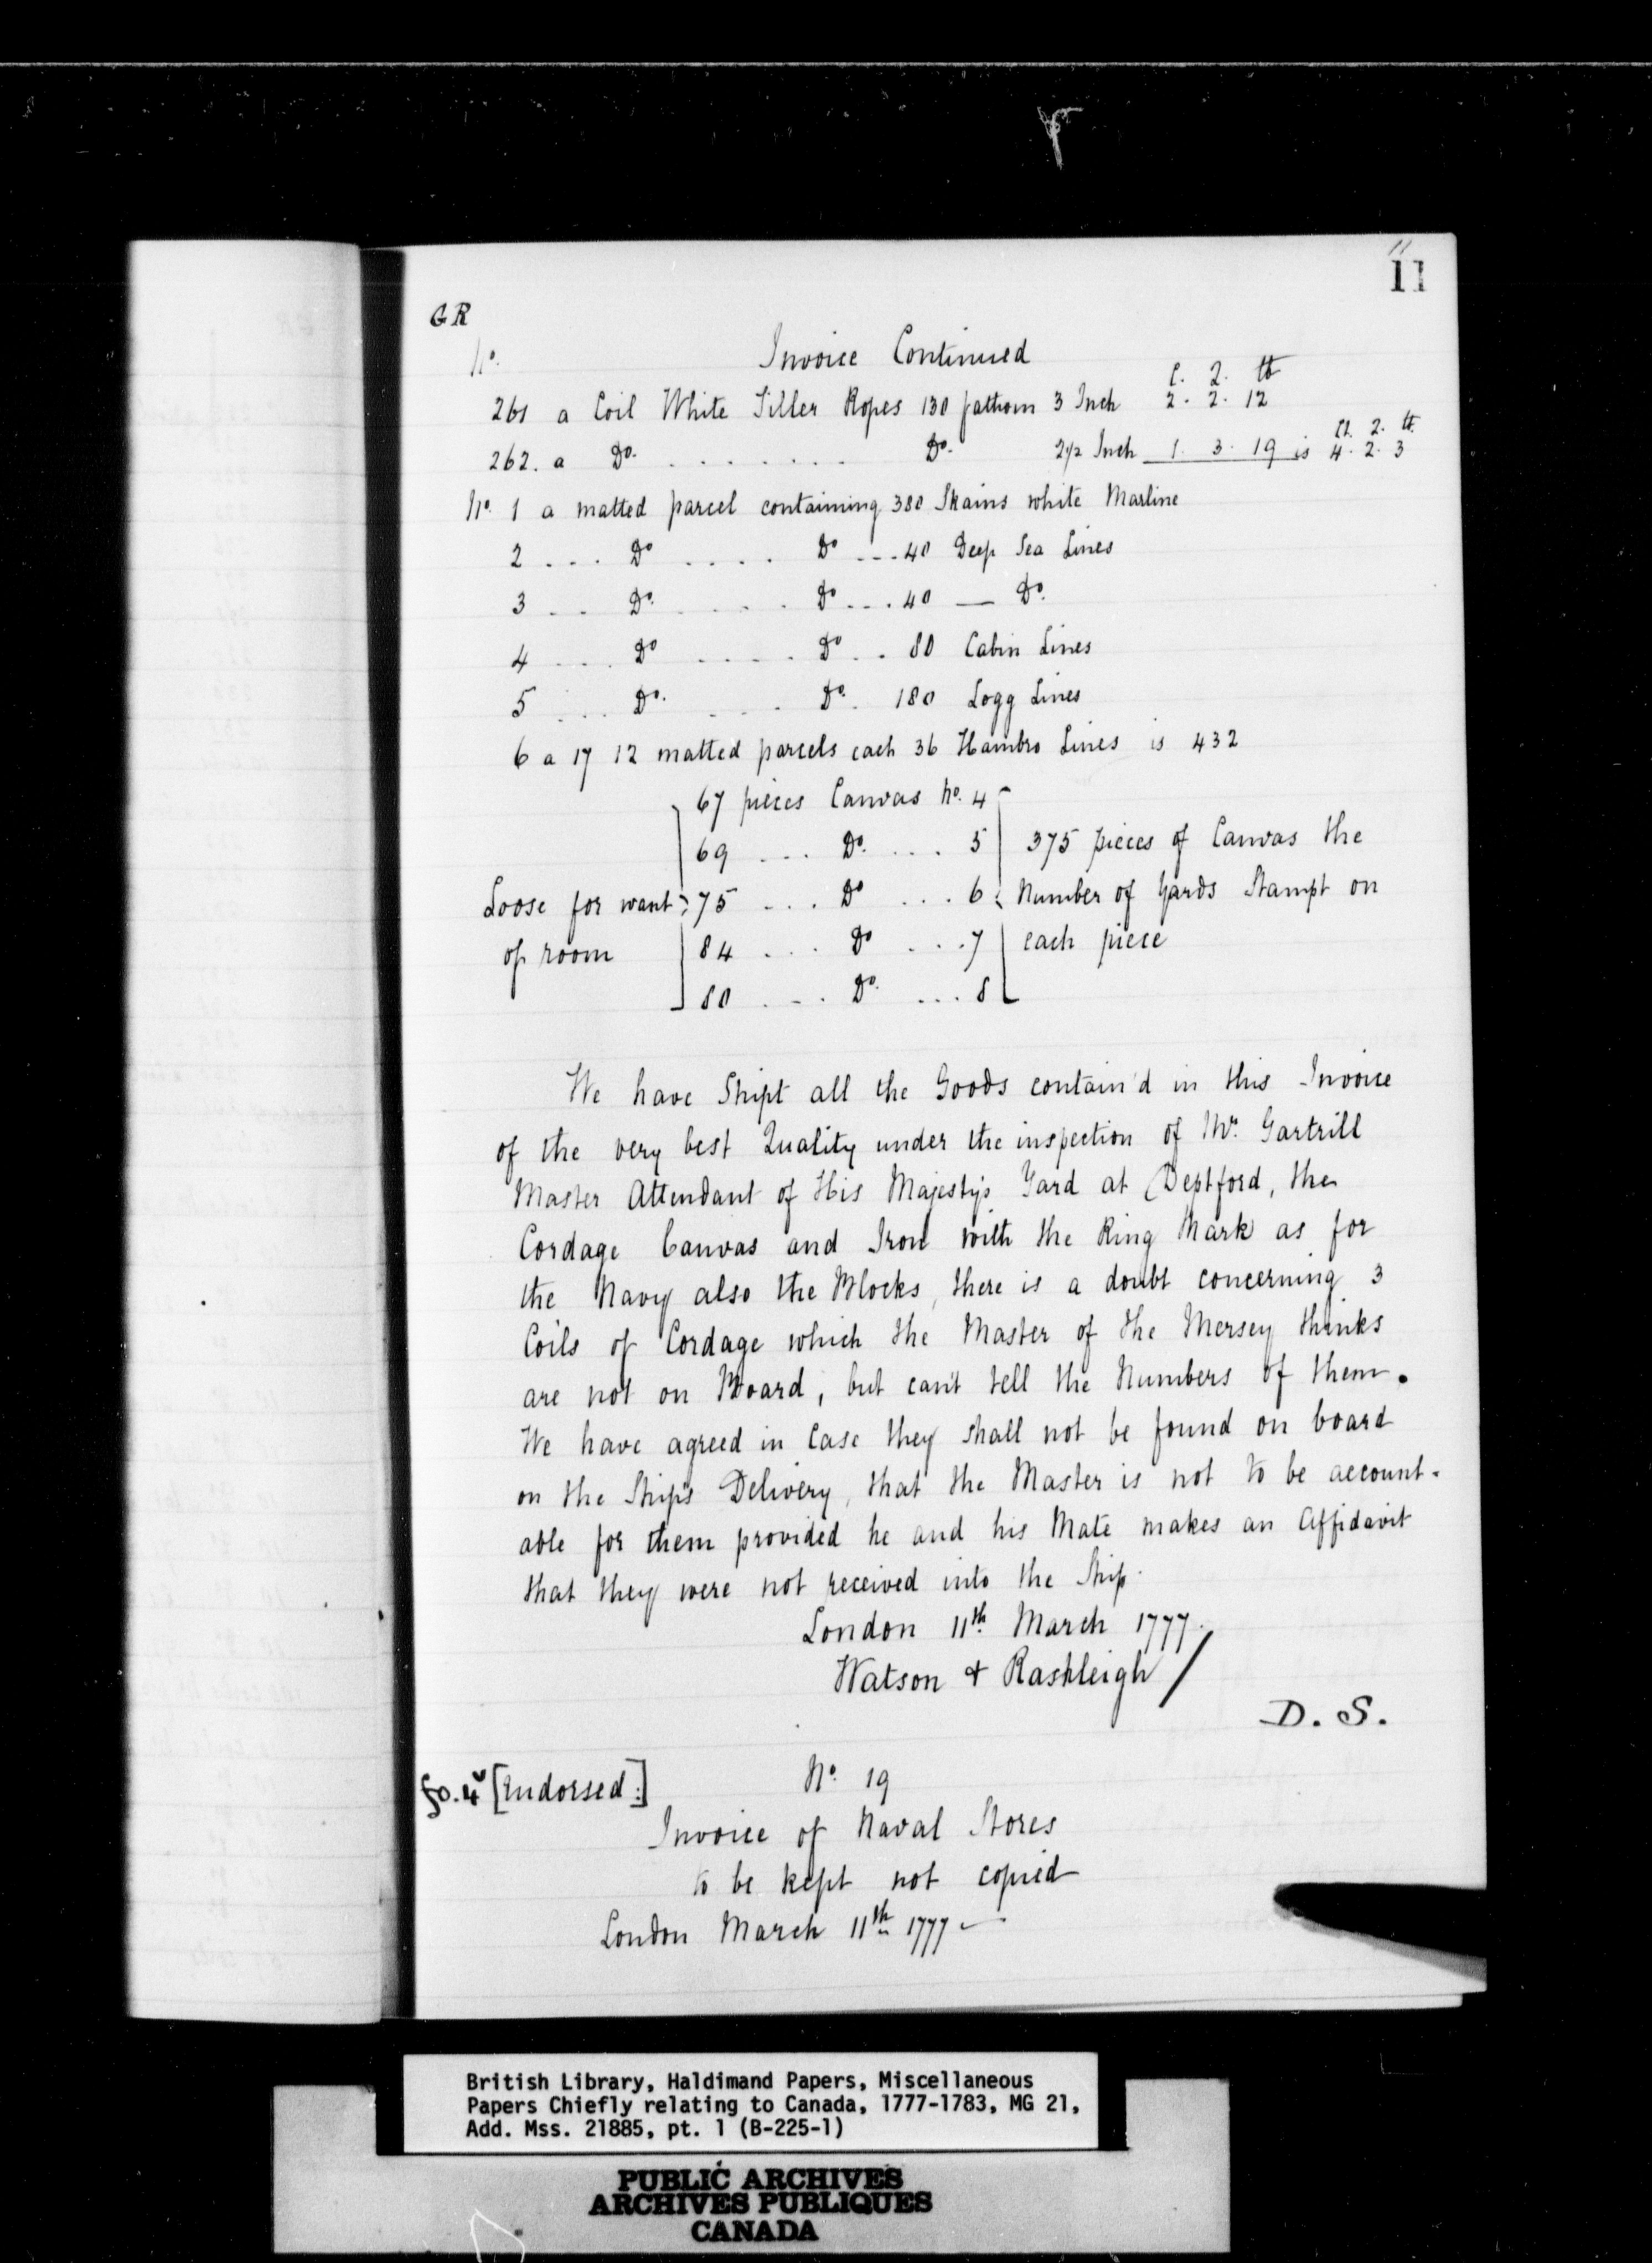 11
11
GR
No. Invoice Continued
C. 2. lb
261 a Coil White Tiller Ropes 130 fathom 3 Inch 2. 2. 12
Ct. 2. lb.
262. a Do. . . . . . . . . Do. 2 1/2 Inch 1. 3. 19 is 4. 2. 3
No. 1 a matted parcel containing 380 Skains white Marline
2 . . . Do . . . . Do . . . 40 Deep Sea Lines
3 . . Do. . . . . Do . . . 40 — Do.
4 . . . Do . . . . . Do . . 80 Cabin Lines
5 . . . Do. . . . Do. 180 Logg Lines
6 a 17 12 matted parcels each 36 Hambro Lines is 432
67 pieces Canvas No. 4
69 . . . Do. . . . 5 375 pieces of Canvas the
Loose for want 75 . . . Do . . . 6 Number of Yards Stampt on
of room 84 . . . Do . . . 7 each piece
80 . . . Do. . . . 8
We have Shipt all the Goods contain'd in this Invoice
of the very best Quality under the inspection of Mr. Gartrill
Master Attendant of His Majesty's Yard at Deptford, the
Cordage Canvas and Iron with the King Mark as for
the Navy also the Blocks, there is a doubt concerning 3
Coils of Cordage which the Master of the Mersey thinks
are not on Board, but can't tell the Numbers of them.
We have agreed in Case they shall not be found on board
on the Ship's Delivery, that the Master is not to be account-
able for them provided he and his Mate makes an Affidavit
that they were not received into the Ship.
London 11th March 1777.
Watson & Rashleigh /
D. S.
fo. 4v [Endorsed:] No. 19
Invoice of Naval Stores
to be kept not copied
London March 11th 1777 —
British Library, Haldimand Papers, Miscellaneous
Papers Chiefly relating to Canada, 1777-1783, MG 21,
Add. Mss. 21885, pt. 1 (B-225-1)
PUBLIC ARCHIVES
ARCHIVES PUBLIQUES
CANADA